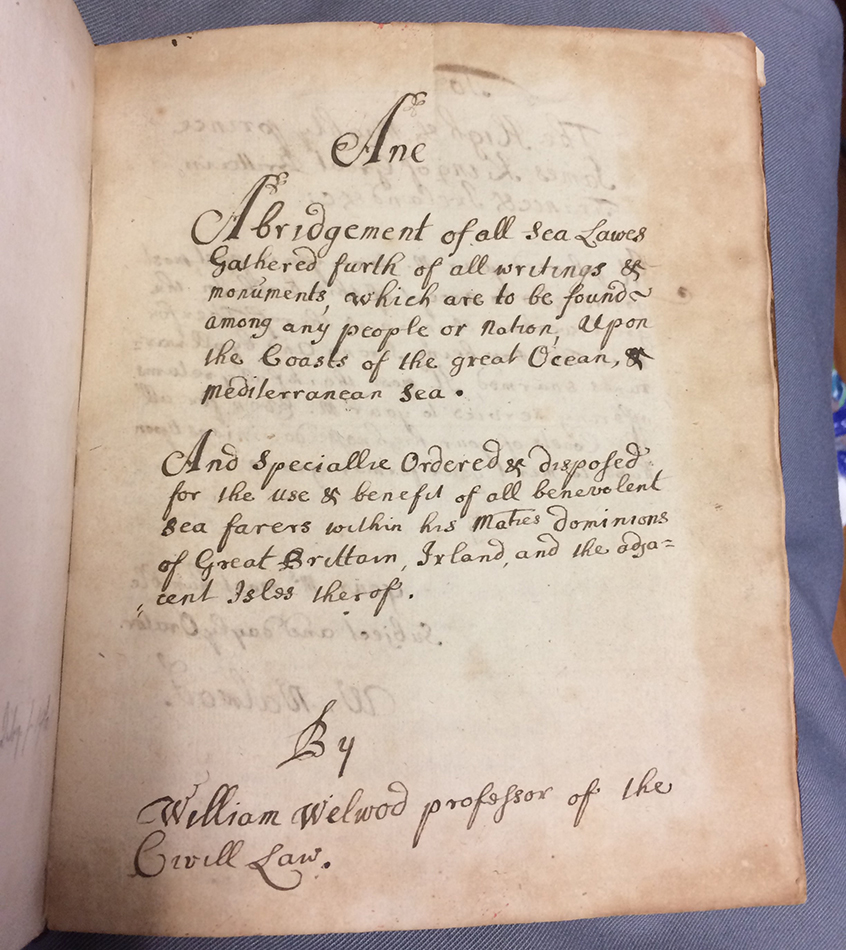 Ane
Abridgement of all Sea Lawes
Gathered furth of all writings &
monuments, which are to be found
among any people or Nation, Upon
the Coasts of the great Ocean, &
Mediterranean Sea.
And Speciallie Ordered & disposed
for the use & benefit of all benevolent
Sea farers within his Maties dominions
of Great Brittain, Irland, and the adja=
„cent Isles therof.
By
William Welwod professor of the
Civill Law.